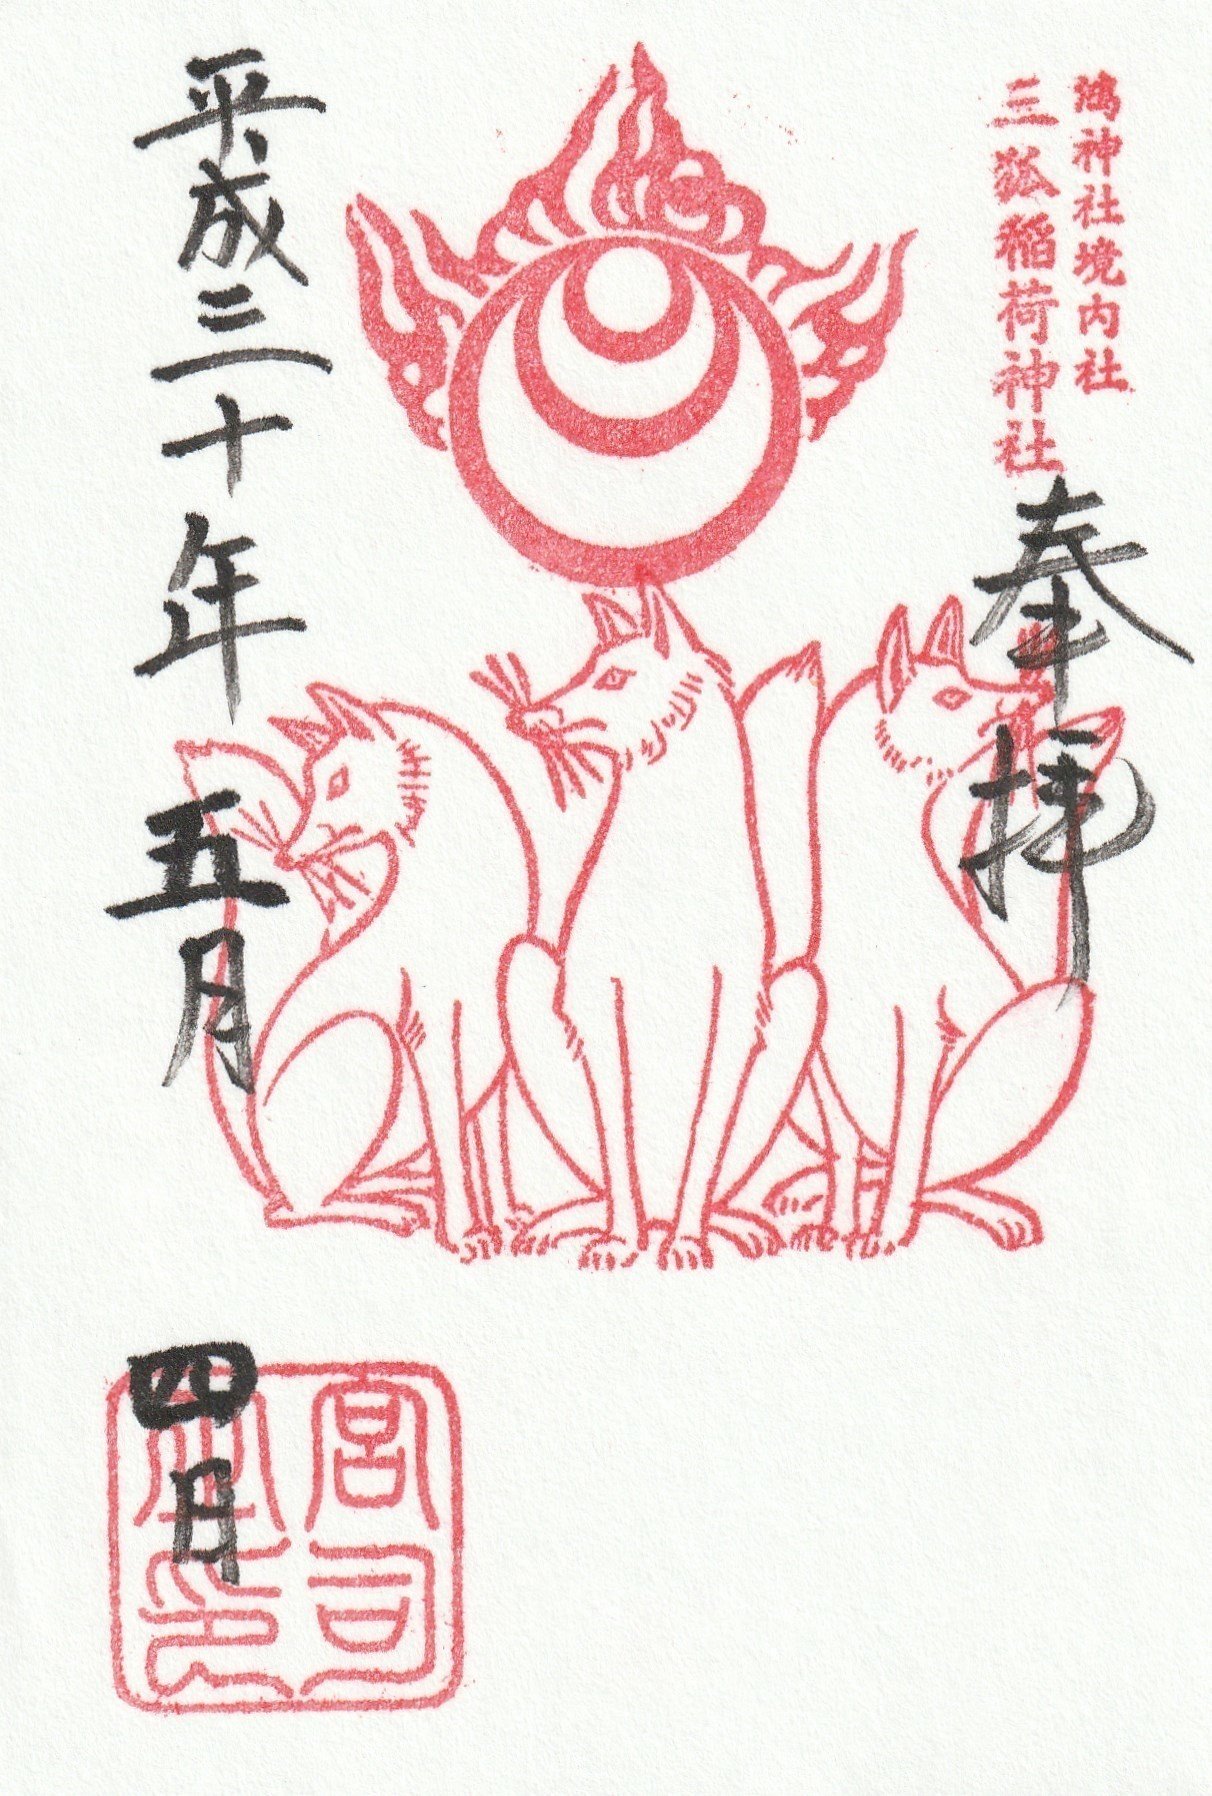 鴻神社境内社
三狐稲荷神社
奉拝
平成三十年
五月
四日
宮司之印